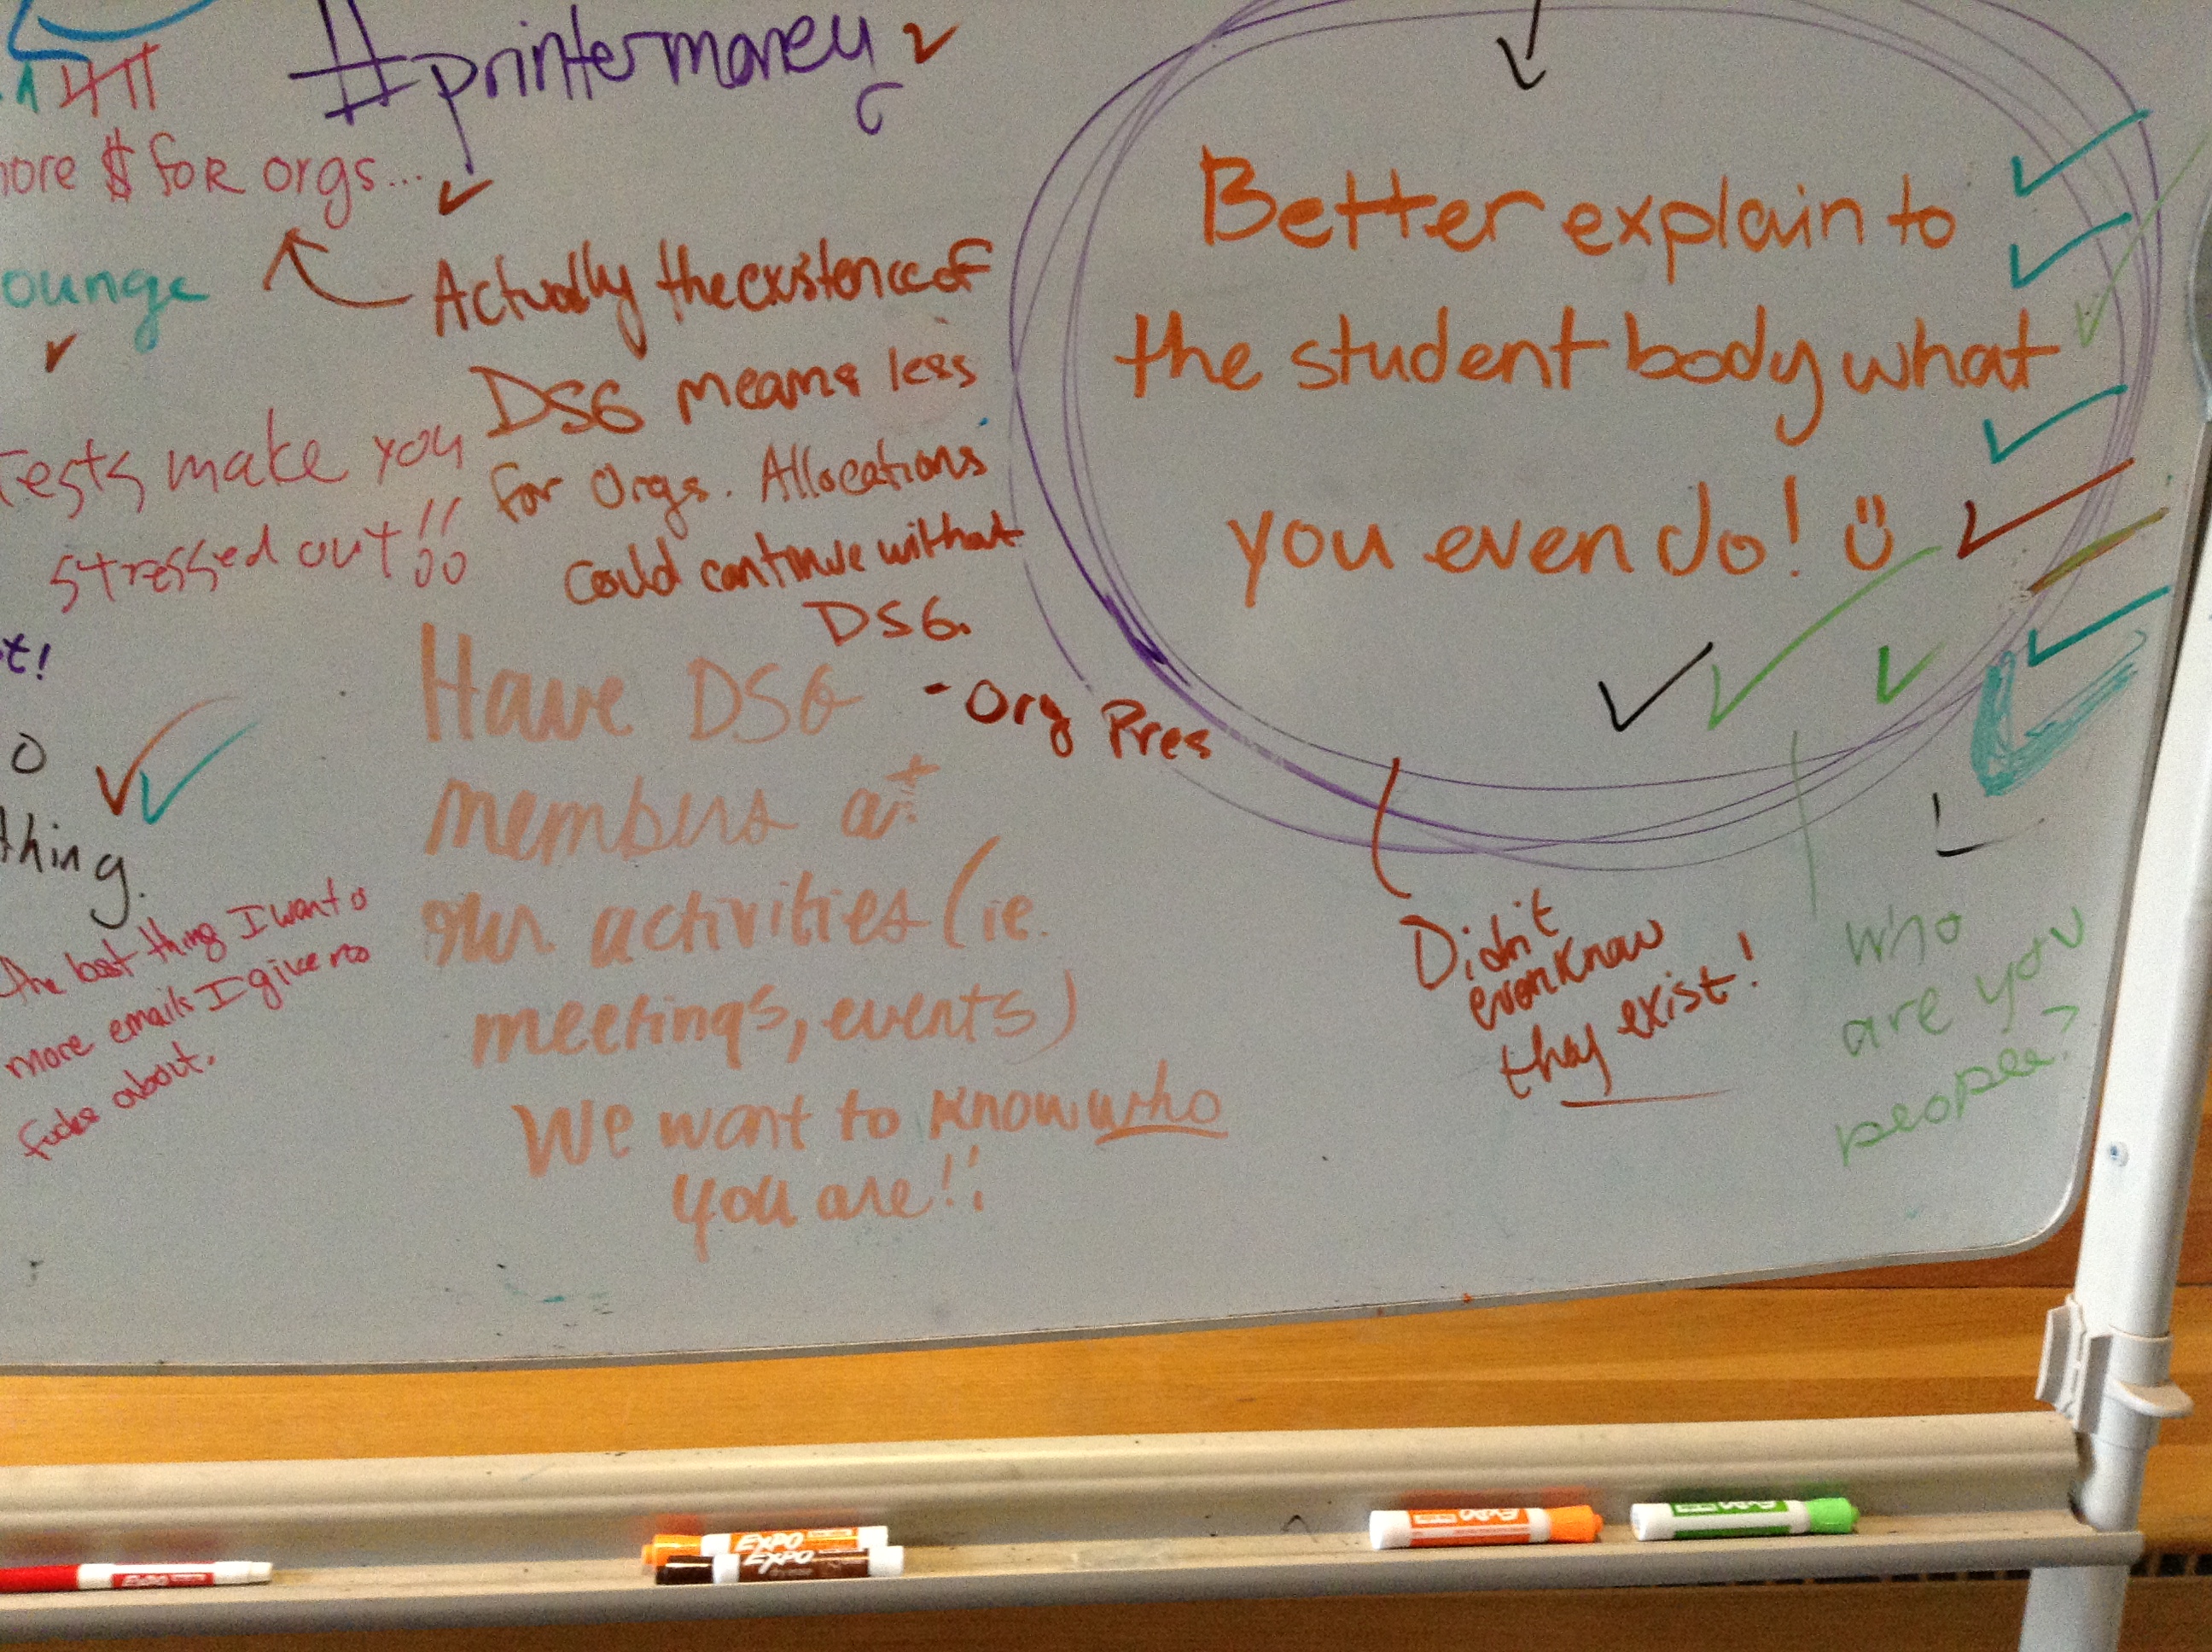 #printermoney
$ for orgs...
Actually the existence of
DSG means less
for orgs. Allocations
could continue without
DSG.
- Org Pres
tests make you
stressed out!!
thing.
the last thing I want is
more emails I give no
fucks about.
Have DSG
members at
our activities (ie.
meetings, events)
We want to know who
you are!!
Better explain to
the student body what
you even do!
Didn't
even know
they exist!
Who
are you
people?
EXPO
EXPO
EXPO
EXPO
EXPO